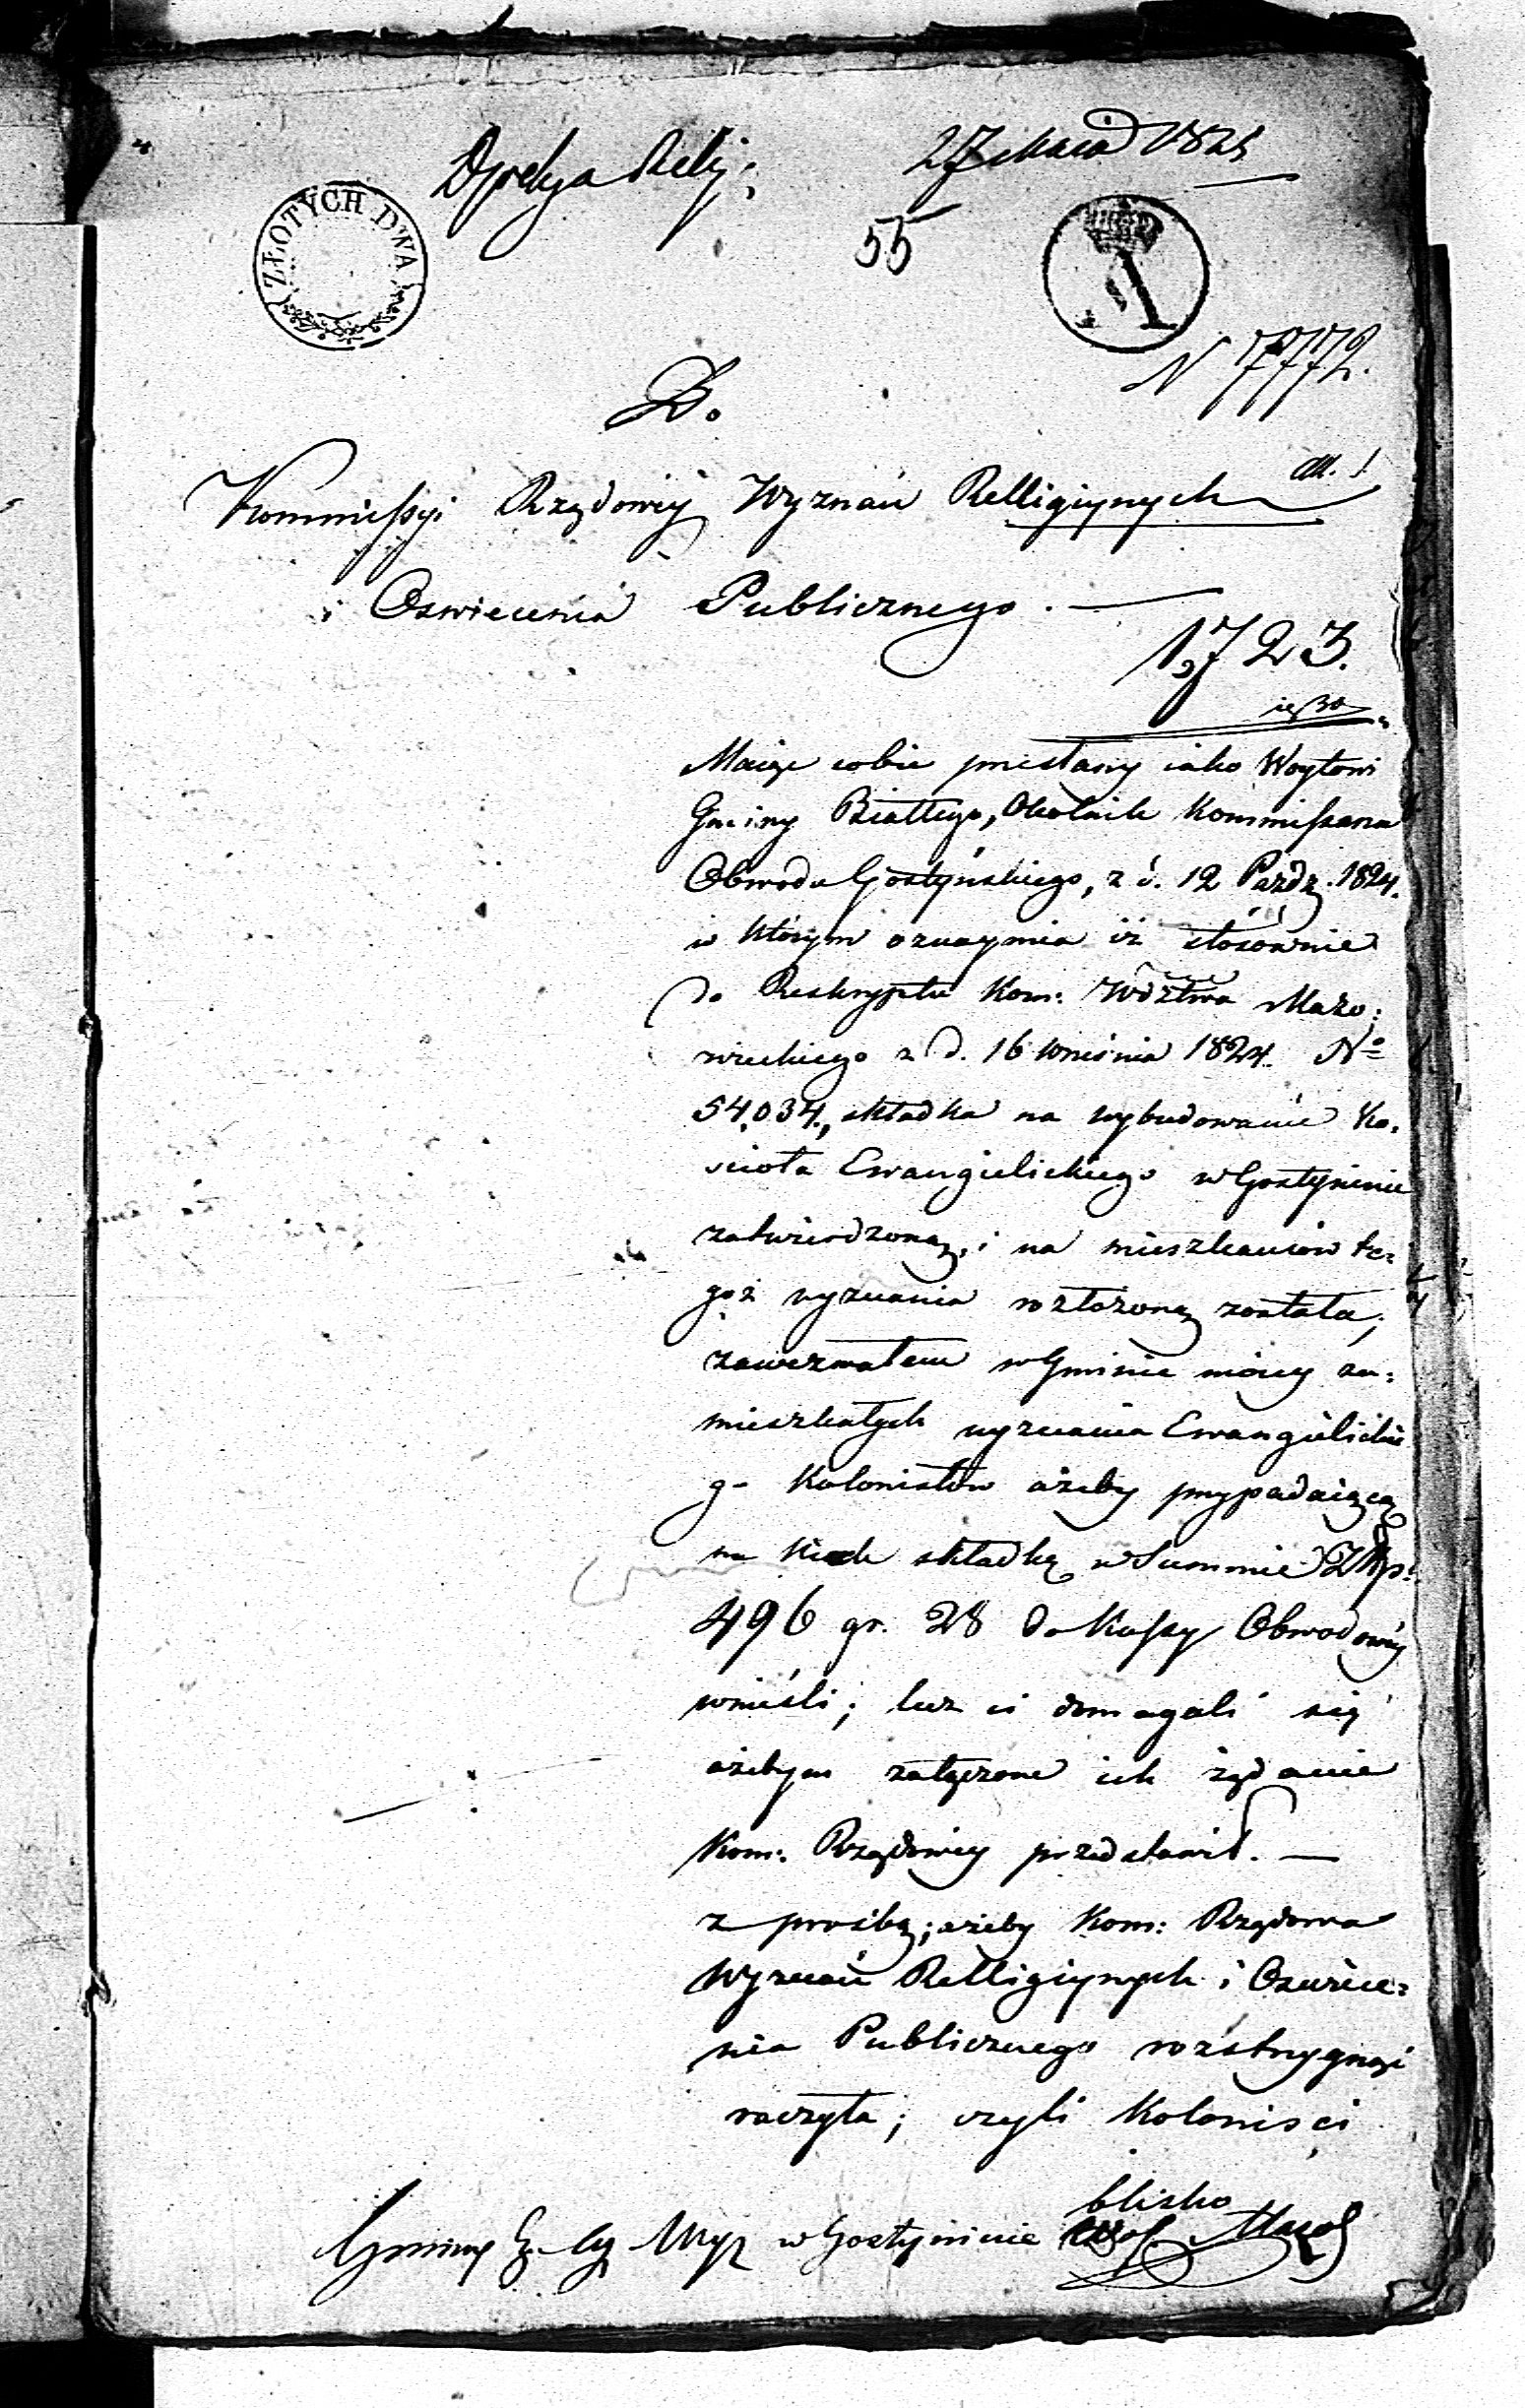 27 Maja 1825
55
ZŁOTYCH DWA
N 17772.
Do
Kommissyi Rządowéy Wyznań Relligiynych
i Oswiecenia Publicznego. —
1723.
Maiąc sobie przesłany iako Woytowi
Gminy Białłego, Okolnik Kommissarza
Obwodu Gostyńskiego, z d. 12 Paźdz. 1824.
w którym oznaymia iż stósównie
do Reskryptu Kom: Wdztwa Mazo:
wieckiego z d. 16 Września 1824. No
54,034., składka na wybudowanie Ko:
scioła Ewangielickiego w Gostyninie
zatwierdzoną, i na mieszkancow te:
goż wyznania rozłozoną została,
zawezwałem w Gminie móiey za:
mieszkałych wyznania Ewangielickie
go Kolonistów ażeby przypadaiącą
na nich składkę w Summie Złłp:
496 gr. 28 do Kassy Obwodowéy
wnieśli; lecz ci domagali się
ażebym załączone ich żądanie
Kom: Rządowéy przedstawił. —
z prośbą; ażeby Kom: Rządowa
Wyznań Relligiynych i Oswiece:
nia Publicznego rozstrzygnąć
raczyła; czyli Kolonisci
blisko
Gminy w Gostyninie